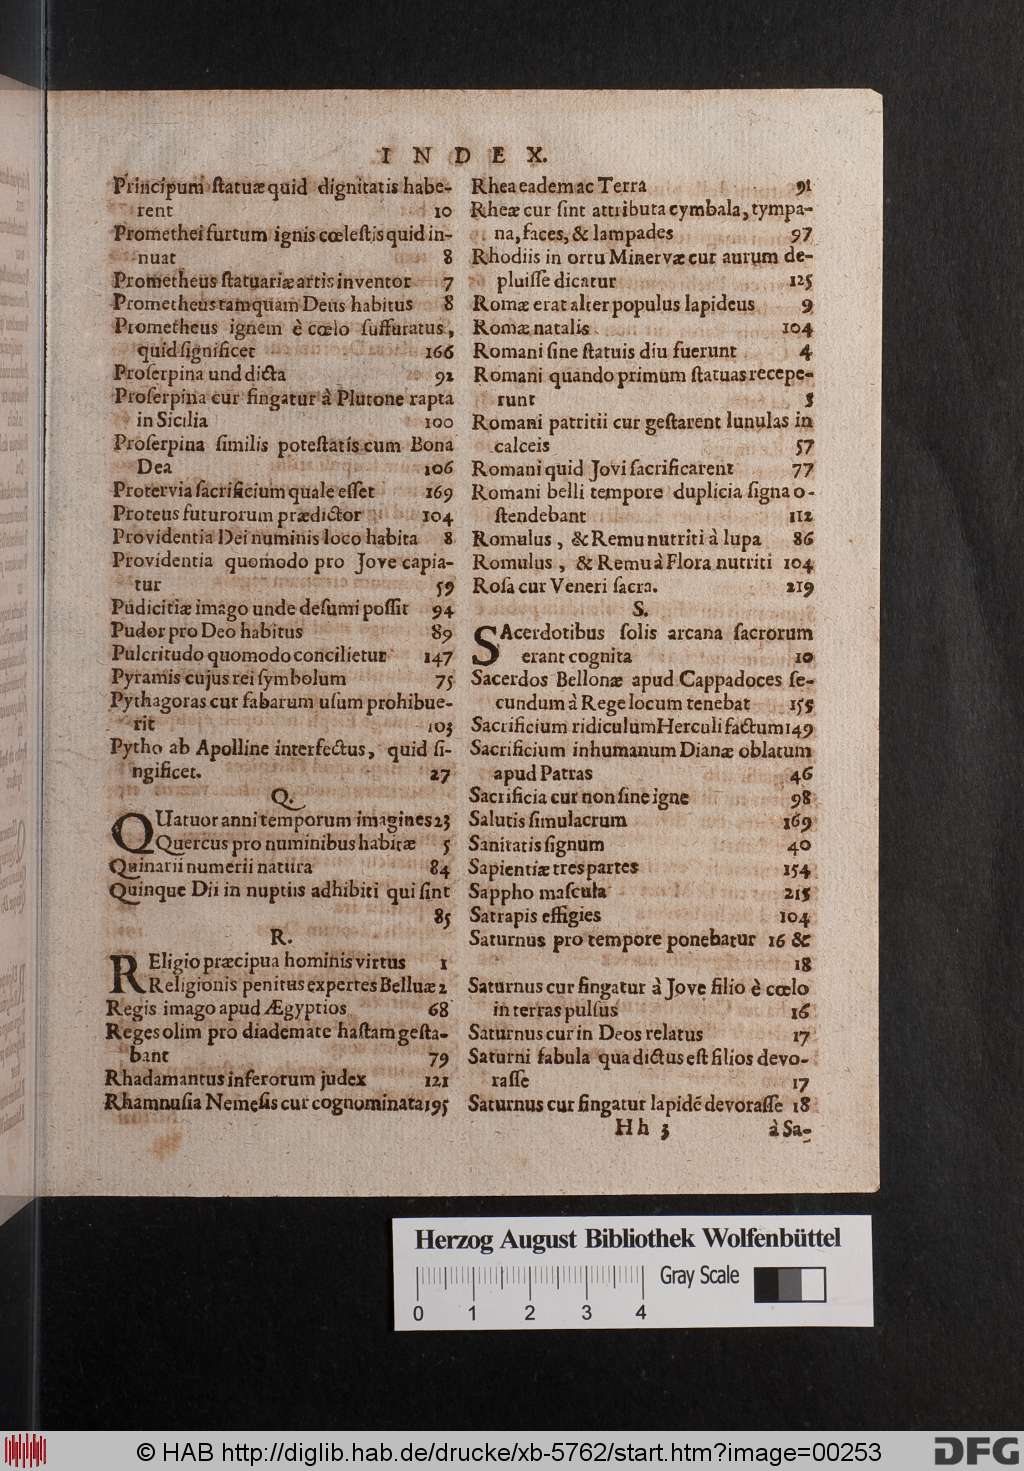 INDEX.
Principum ſtatuæ quid dignitatis habe-
rent 10
Promethei furtum ignis cœleſtis quid in-
nuat 8
Prometheus ſtatuariæ artis inventor 7
Prometheus tamquam Deus habitus 8
Prometheus ignem è cœlo ſuffuratus,
quid ſignificet 166
Proſerpina und dicta 92
Proſerpina cur fingatur à Plutone rapta
in Sicilia 100
Proſerpina ſimilis poteſtatis cum Bona
Dea 106
Protervia ſacrificium quale eſſet 169
Proteus futurorum prædictor 104
Providentia Dei numinis loco habita 8
Providentia quomodo pro Jove capia-
tur 59
Pudicitiæ imago unde deſumi poſſit 94
Pudor pro Deo habitus 89
Pulcritudo quomodo concilietur 147
Pyramis cujus rei ſymbolum 75
Pythagoras cur fabarum uſum prohibue-
rit 103
Pytho ab Apolline interfectus, quid ſi-
ngificet. 27
Q.
QUatuor anni temporum imagines 23
Quercus pro numinibus habitæ 5
Quinarii numerii natura 84
Quinque Dii in nuptiis adhibiti qui ſint
85
R.
REligio præcipua hominis virtus 1
Religionis penitus expertes Belluæ 2
Regis imago apud Ægyptios 68
Reges olim pro diademate haſtam geſta-
bant 79
Rhadamantus inferorum judex 121
Rhamnuſia Nemeſis cur cognominata 195
Rhea eadem ac Terra 91
Rheæ cur ſint attributa cymbala, tympa-
na, faces, & lampades 97
Rhodiis in ortu Minervæ cur aurum de-
pluiſſe dicatur 125
Romæ erat alter populus lapideus 9
Romæ natalis 104
Romani ſine ſtatuis diu fuerunt 4
Romani quando primum ſtatuas recepe-
runt 5
Romani patritii cur geſtarent lunulas in
calceis 57
Romani quid Jovi ſacrificarent 77
Romani belli tempore duplicia ſigna o-
ſtendebant 112
Romulus, & Remu nutriti à lupa 86
Romulus, & Remu à Flora nutriti 104
Roſa cur Veneri ſacra. 219
S.
SAcerdotibus ſolis arcana ſacrorum
erant cognita 10
Sacerdos Bellonæ apud Cappadoces ſe-
cundum à Rege locum tenebat 155
Sacrificium ridiculum Herculi factum 149
Sacrificium inhumanum Dianæ oblatum
apud Patras 46
Sacrificia cur non ſine igne 98
Salutis ſimulacrum 169
Sanitatis ſignum 40
Sapientiæ tres partes 154
Sappho maſcula 215
Satrapis effigies 104
Saturnus pro tempore ponebatur 16 &
18
Saturnus cur fingatur à Jove filio è cœlo
in terras pulſus 16
Saturnus cur in Deos relatus 17
Saturni fabula qua dictus eſt filios devo-
raſſe 17
Saturnus cur fingatur lapidẽ devoraſſe 18
Hh 3 à Sa-
Herzog August Bibliothek Wolfenbüttel
Gray Scale
0 1 2 3 4
© HAB http://diglib.hab.de/drucke/xb-5762/start.htm?image=00253
DFG